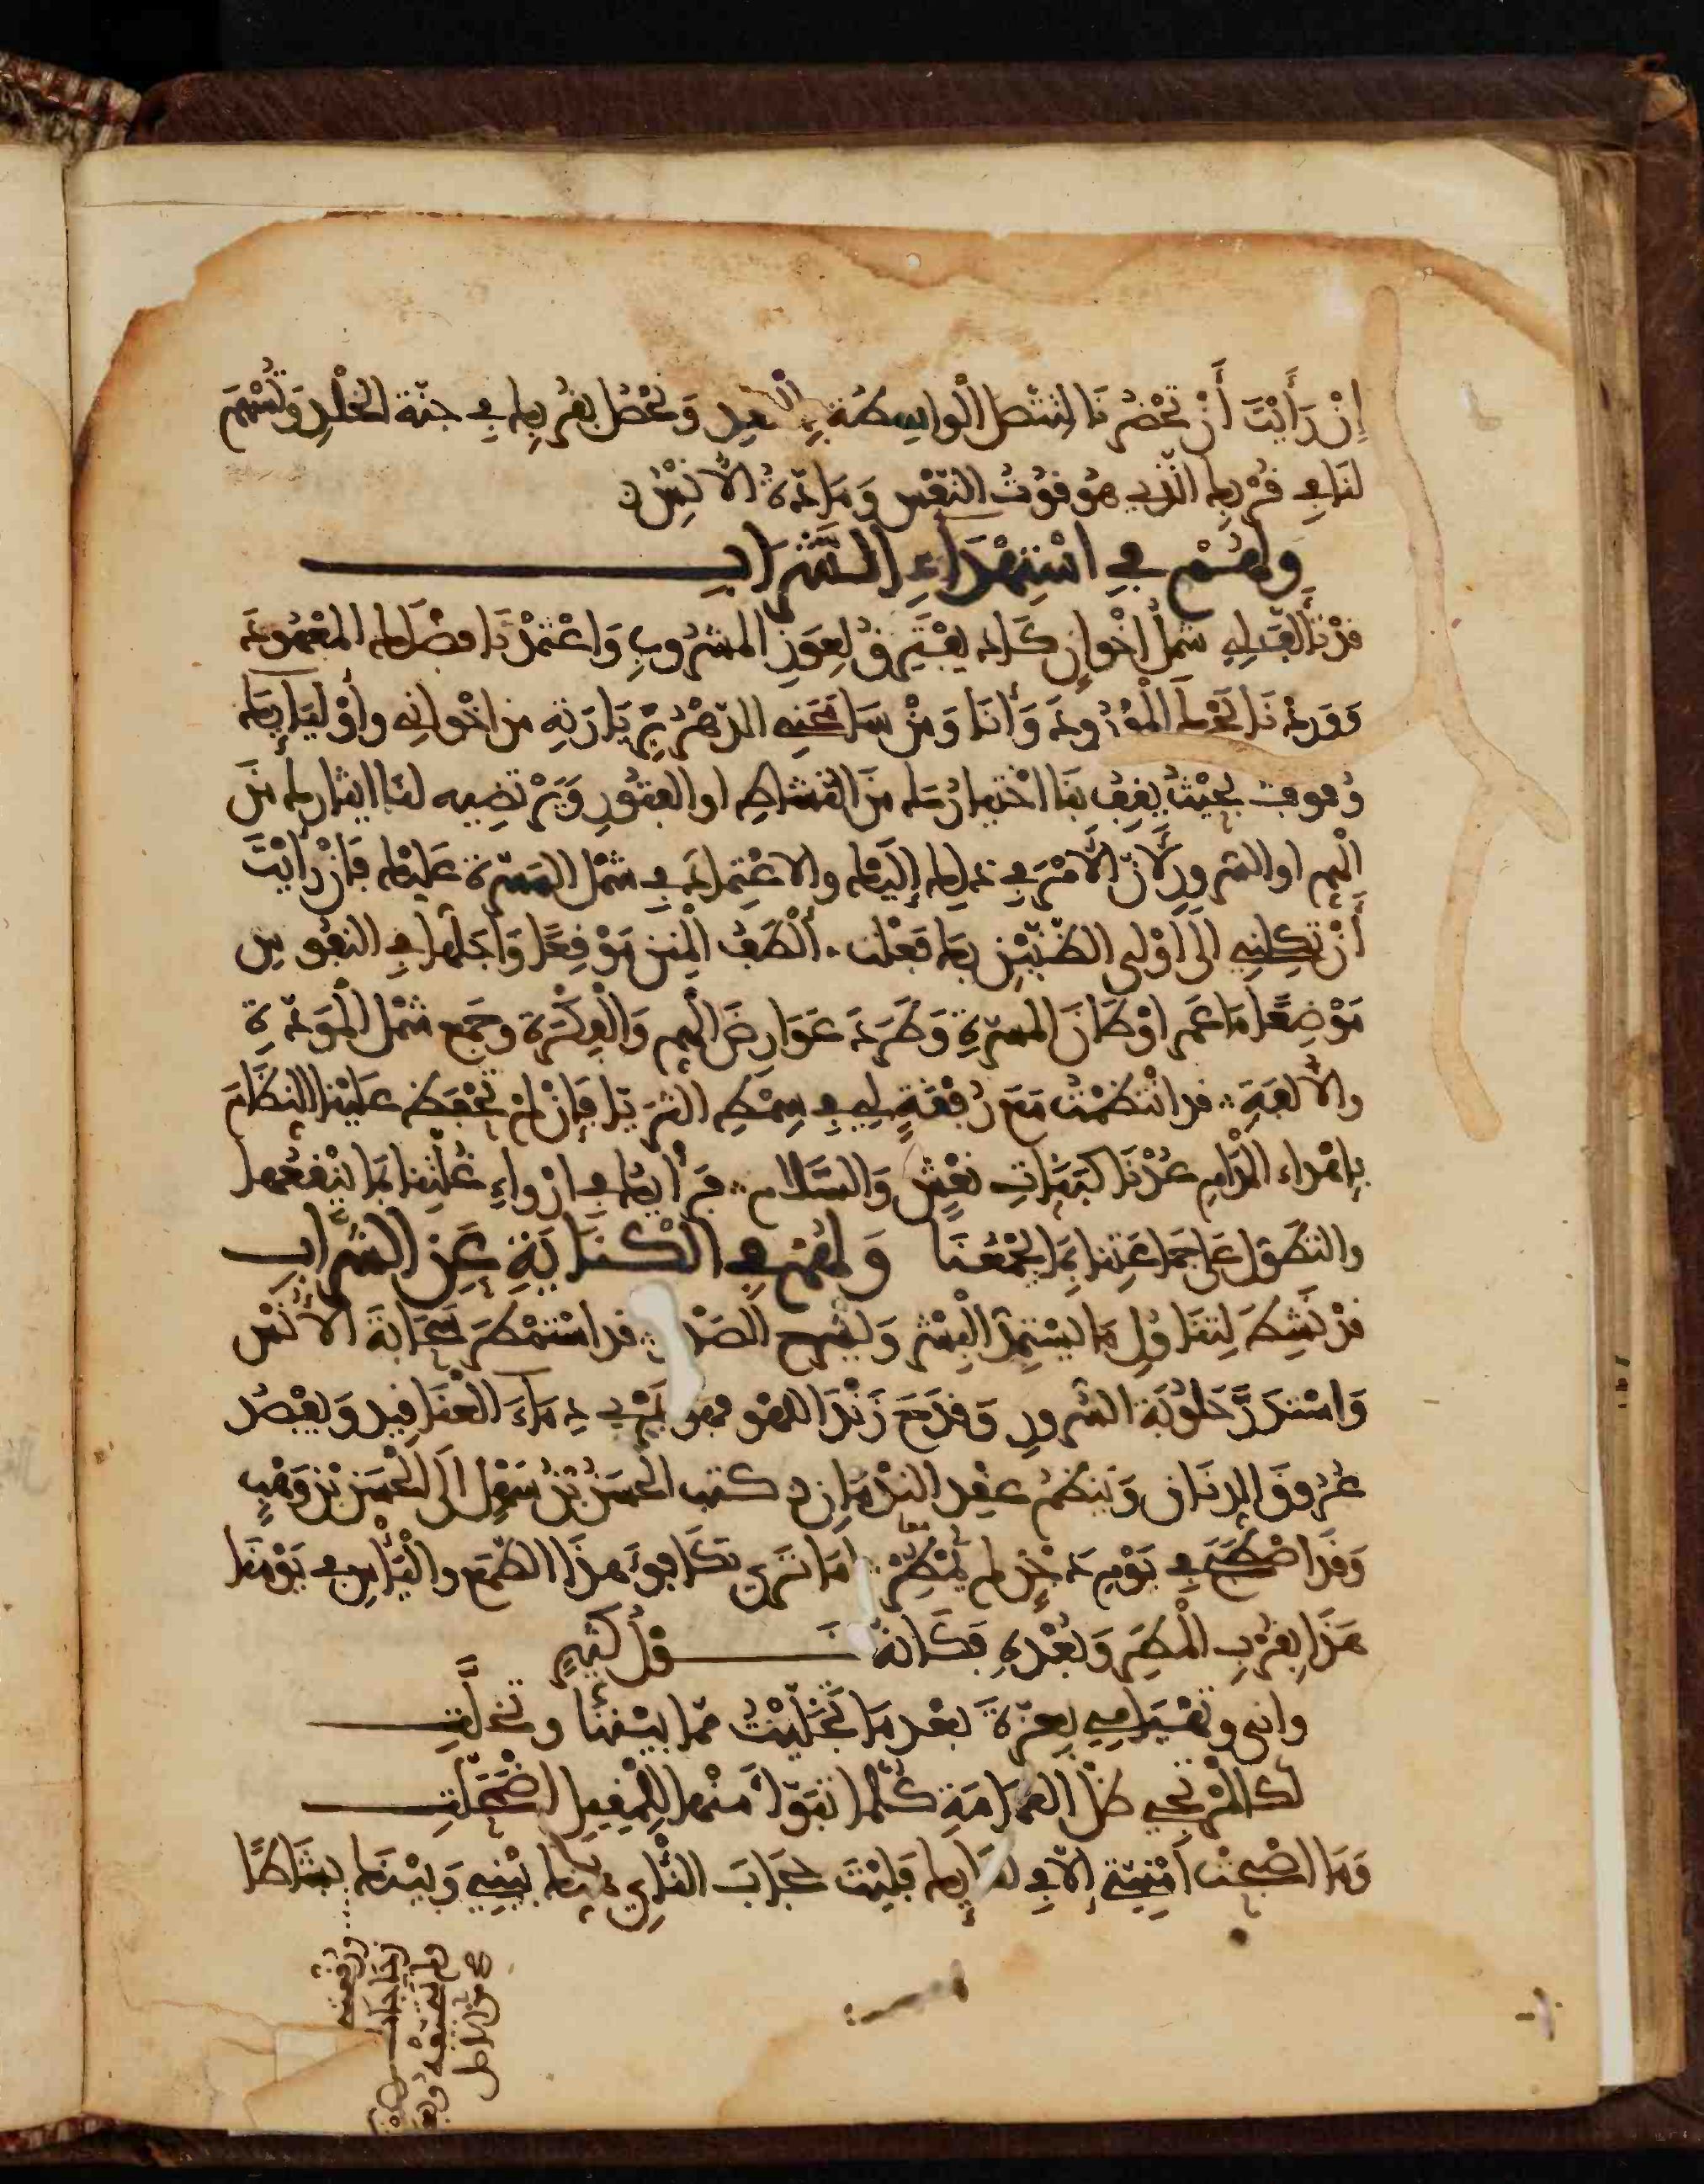 إِنْ رَأَيْتَ أَنْ تَحْضُرَنَا لِتَتَّصِلَ الْوَاسِطَةُ بِالْعِقْدِ وَنَحْصُلَ بِقُرْبِكَ فِي جَنَّةِ الْخُلْدِ وَتُسْهِمَ
لَنَا فِي قُرْبِكَ الَّذِي هُوَ قُوتُ النَّفْسِ وَمَادَّةُ الْأُنْسِ
وَلَهُمْ فِي اسْتِهْدَاءِ الشَّرَابِ
قَدْ تَأَلَّفَ لِي شَمْلُ إِخْوَانٍ كَادَ يَفْتَرِقُ لِعَوَزِ الْمَشْرُوبِ وَاعْتَمَدْنَا فَضْلَكَ الْمَعْهُودَ
وَوَرَدْنَا بَحْرَكَ الْمَوْرُودَ وَأَنَا وَمَنْ سَامَحَنِي الدَّهْرُ بِزِيَارَتِهِ مِنْ إِخْوَانِي وَأَوْلِيَائِكَ
وُقُوفٌ بِحَيْثُ يَقِفُ بِنَا اخْتِيَارُكَ مِنَ النَّشَاطِ أو الْفُتُورِ وَيَرْتَضِيهِ لَنَا إيثَارُكَ مِنَ
الْهَمِّ او السُّرُورِ لِأَنَّ الْأَمْرَ فِي ذَلِكَ إِلَيْكَ وَالِاعْتِمَادَ فِي شَمْلِ الْمَسَرَّةِ عَلَيْكَ فَإِنْ رَأَيْتَ
أَنْ تَكِلَنِي إِلَى أَوْلَى الظَّنَّيْنِ بِكَ فَعَلْتَ. أَلْطَفُ الْمِنَنِ مَوْقِعًا وَأَجَلُّهَا فِي النُّفُوسِ
مَوْضِعًا مَا عَمَرَ أَوْطَانَ الْمَسَرَّةِ وَطَرَدَ عَوَارِضَ الْهَمِّ وَالْفِكْرَةِ وَجَمَعَ شَمْلَ الْمَوَدَّةِ
وَالْأُلْفَةِ. قد انْتَظَمْتُ مَعَ رُفْقَةٍ لِي فِي سِمْطِ الثُّرَيَّا فَإِنْ لَمْ تَحْفَظْ عَلَيْنَا النِّظَامَ
بِإِهْدَاءِ الْمُدَامِ عُدْنَا كَبَنَاتِ نَعْشٍ وَالسَّلَام. فَرَأْيُكَ فِي إِرْوَاءِ غُلَّتِنَا بِمَا يَنْقَعُهَا
وَالتَّطَوُّلِ عَلَى جَمَاعَتِنَا بِمَا يَجْمَعُنَا وَلَهُمْ فِي الْكِنَايَةِ عَنِ الشَّرَابِ
قَدْ نَشِطَ لِتَنَاوُلِ مَا يَسْتَمِدُّ الْبِشْرَ وَيَشْرَحُ الصَّدْرَ. قد اسْتَمْطَرَ سَحَابَةَ الْأُنْسِ
وَاسْتَدَرَّ حَلُوبَةَ السُّرُورِ وَقَدَحَ زَنْدَ اللَّهْوِ فهو يَمْرِي دِمَاءَ الْعَنَاقِيدِ وَيَفْصِدُ
عُرُوقَ الدِّنَانِ وَيَنْظِمُ عِقْدَ النُّدْمَانِ كتب الْحَسَنُ بْنُ سَهْلٍ إِلَى الْحَسَنِ بْنِ وَهْبٍ
وَقَدِ اصْطَبَحَ فِي يَوْمِ دَجْنٍ لم يُمْطِرْ أمَا تَرَى تَكَافُؤَ هَذَا الطَّمَعِ وَالْيَأْسِ فِي يَوْمِنَا
هَذَا بِقُرْبِ الْمَطَرِ وَبُعْدِهِ فَكَأَنَّهُ قَوْلُ كُثَيِّرٍ
وَإِنِّي وَتَهْيَامِي بِعَزَّةَ بَعْدَ مَا تَخَلَّيْتُ مِمَّا بَيْنَنَا وَتَخَلَّتِ
لَكَالْمُرْتَجِي ظِلَّ الْغَمَامَةِ كُلَّمَا تَبَوَّأَ مِنْهَا لِلْمَقِيلِ اضْمَحَلَّتِ
وَمَا أَصْبَحَتْ أُمْنِيَّتِي إِلَّا فِي لِقَائِكَ فَلَيْتَ حِجَابَ النَّأْيِ هُتِكَ بَيْنِي وَبَيْنَكَ